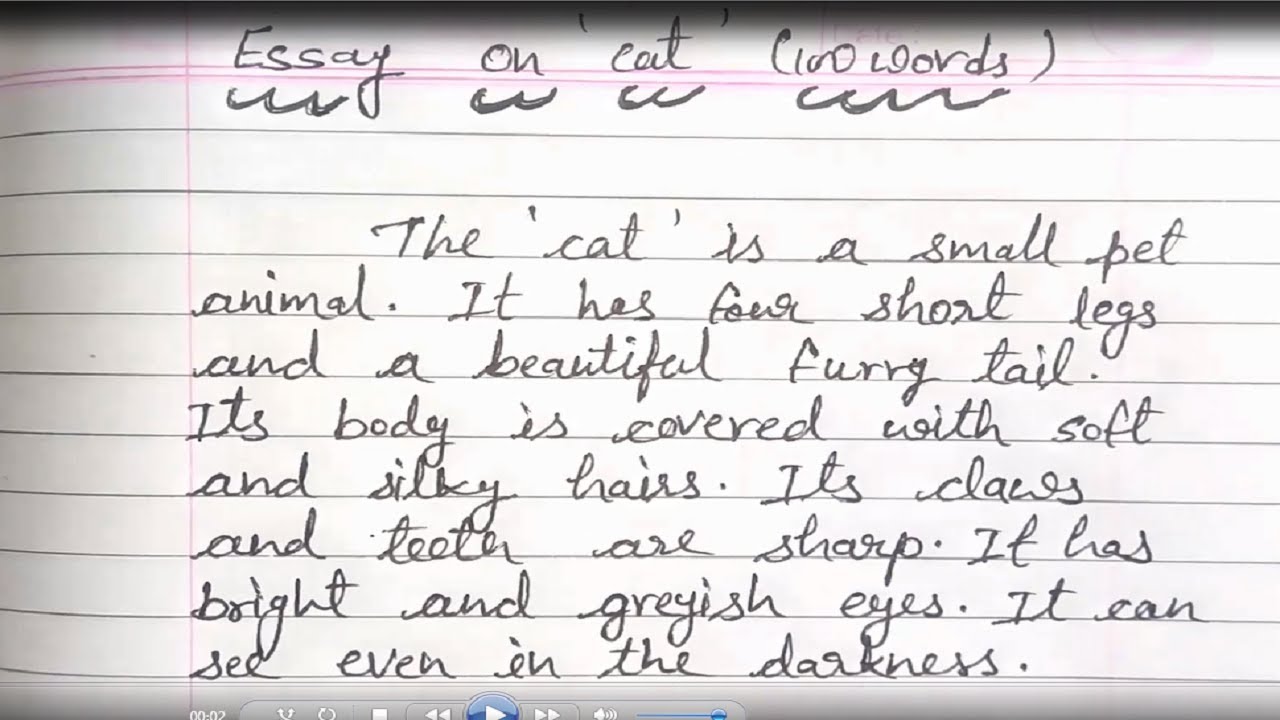 Essay on 'cat' (100 words)
The 'cat' is a small pet
animal. It has four short legs
and a beautiful furry tail.
Its body is covered with soft
and silky hairs. Its claws
and teeth are sharp. It has
bright and greyish eyes. It can
see even in the darkness.
00:02